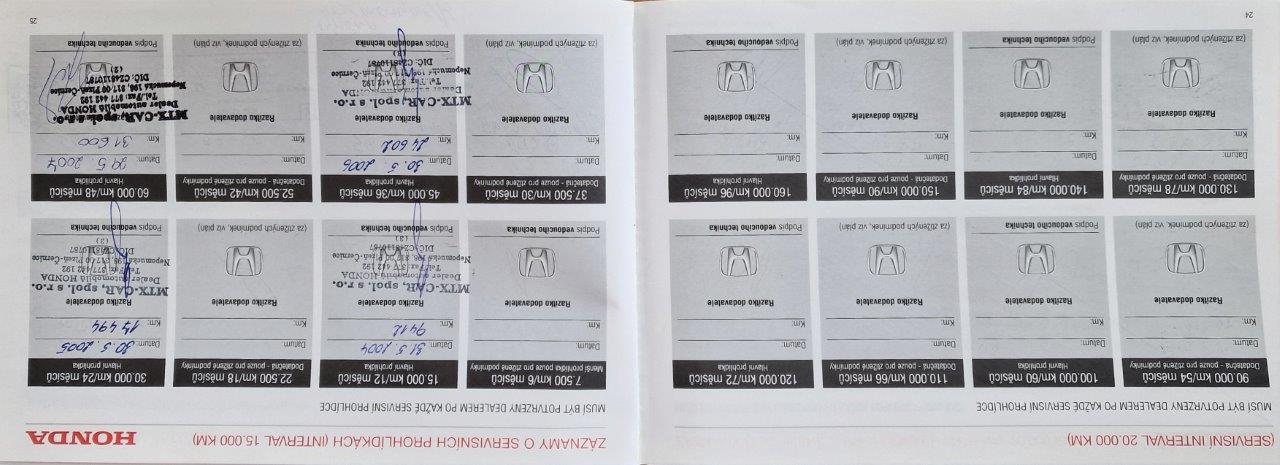 (SERVISNÍ INTERVAL 20.000 KM)
MUSÍ BÝT POTVRZENY DEALEREM PO KAŽDÉ SERVISNÍ PROHLÍDCE
90.000 km/54 měsíců
Dodatečná - pouze pro ztížené podmínky
Datum:
Km:
Razítko dodavatele
(za ztížených podmínek, viz plán)
100.000 km/60 měsíců
Hlavní prohlídka
Datum:
Km:
Razítko dodavatele
Podpis vedoucího technika
110.000 km/66 měsíců
Dodatečná - pouze pro ztížené podmínky
Datum:
Km:
Razítko dodavatele
(za ztížených podmínek, viz plán)
120.000 km/72 měsíců
Hlavní prohlídka
Datum:
Km:
Razítko dodavatele
Podpis vedoucího technika
130.000 km/78 měsíců
Dodatečná - pouze pro ztížené podmínky
Datum:
Km:
Razítko dodavatele
(za ztížených podmínek, viz plán)
140.000 km/84 měsíců
Hlavní prohlídka
Datum:
Km:
Razítko dodavatele
Podpis vedoucího technika
150.000 km/90 měsíců
Dodatečná - pouze pro ztížené podmínky
Datum:
Km:
Razítko dodavatele
(za ztížených podmínek, viz plán)
160.000 km/96 měsíců
Hlavní prohlídka
Datum:
Km:
Razítko dodavatele
Podpis vedoucího technika
24
ZÁZNAMY O SERVISNÍCH PROHLÍDKÁCH (INTERVAL 15.000 KM)
HONDA
MUSÍ BÝT POTVRZENY DEALEREM PO KAŽDÉ SERVISNÍ PROHLÍDCE
7.500 km/6 měsíců
Menší prohlídka pouze pro ztížené podmínky
Datum:
Km:
Razítko dodavatele
(za ztížených podmínek, viz plán)
15.000 km/12 měsíců
Hlavní prohlídka
Datum: 31.5. 2004
Km: 9412
Razítko dodavatele
MTX-CAR, spol. s r.o.
Dealer automobilů HONDA
Tel./Fax: 377 442 192
Nepomucká 198, 317 00 Plzeň-Černice
DIČ: CZ48110787
(3)
Podpis vedoucího technika
22.500 km/18 měsíců
Dodatečná - pouze pro ztížené podmínky
Datum:
Km:
Razítko dodavatele
(za ztížených podmínek, viz plán)
30.000 km/24 měsíců
Hlavní prohlídka
Datum: 30.5. 2005
Km: 17 494
Razítko dodavatele
MTX-CAR, spol. s r.o.
Dealer automobilů HONDA
Tel./Fax: 377 442 192
Nepomucká 198, 317 00 Plzeň-Černice
DIČ: CZ48110787
(3)
Podpis vedoucího technika
37.500 km/30 měsíců
Dodatečná - pouze pro ztížené podmínky
Datum:
Km:
Razítko dodavatele
(za ztížených podmínek, viz plán)
45.000 km/36 měsíců
Hlavní prohlídka
Datum: 30.5. 2006
Km: 24 602
Razítko dodavatele
MTX-CAR, spol. s r.o.
Dealer automobilů HONDA
Tel./Fax: 377 442 192
Nepomucká 198, 317 00 Plzeň-Černice
DIČ: CZ48110787
(3)
Podpis vedoucího technika
52.500 km/42 měsíců
Dodatečná - pouze pro ztížené podmínky
Datum:
Km:
Razítko dodavatele
(za ztížených podmínek, viz plán)
60.000 km/48 měsíců
Hlavní prohlídka
Datum: 29.5. 2007
Km: 31 600
MTX-CAR, spol. s r.o.
Dealer automobilů HONDA
Tel./Fax: 377 442 192
Nepomucká 198, 317 00 Plzeň-Černice
DIČ: CZ48110787
(2)
Podpis vedoucího technika
25